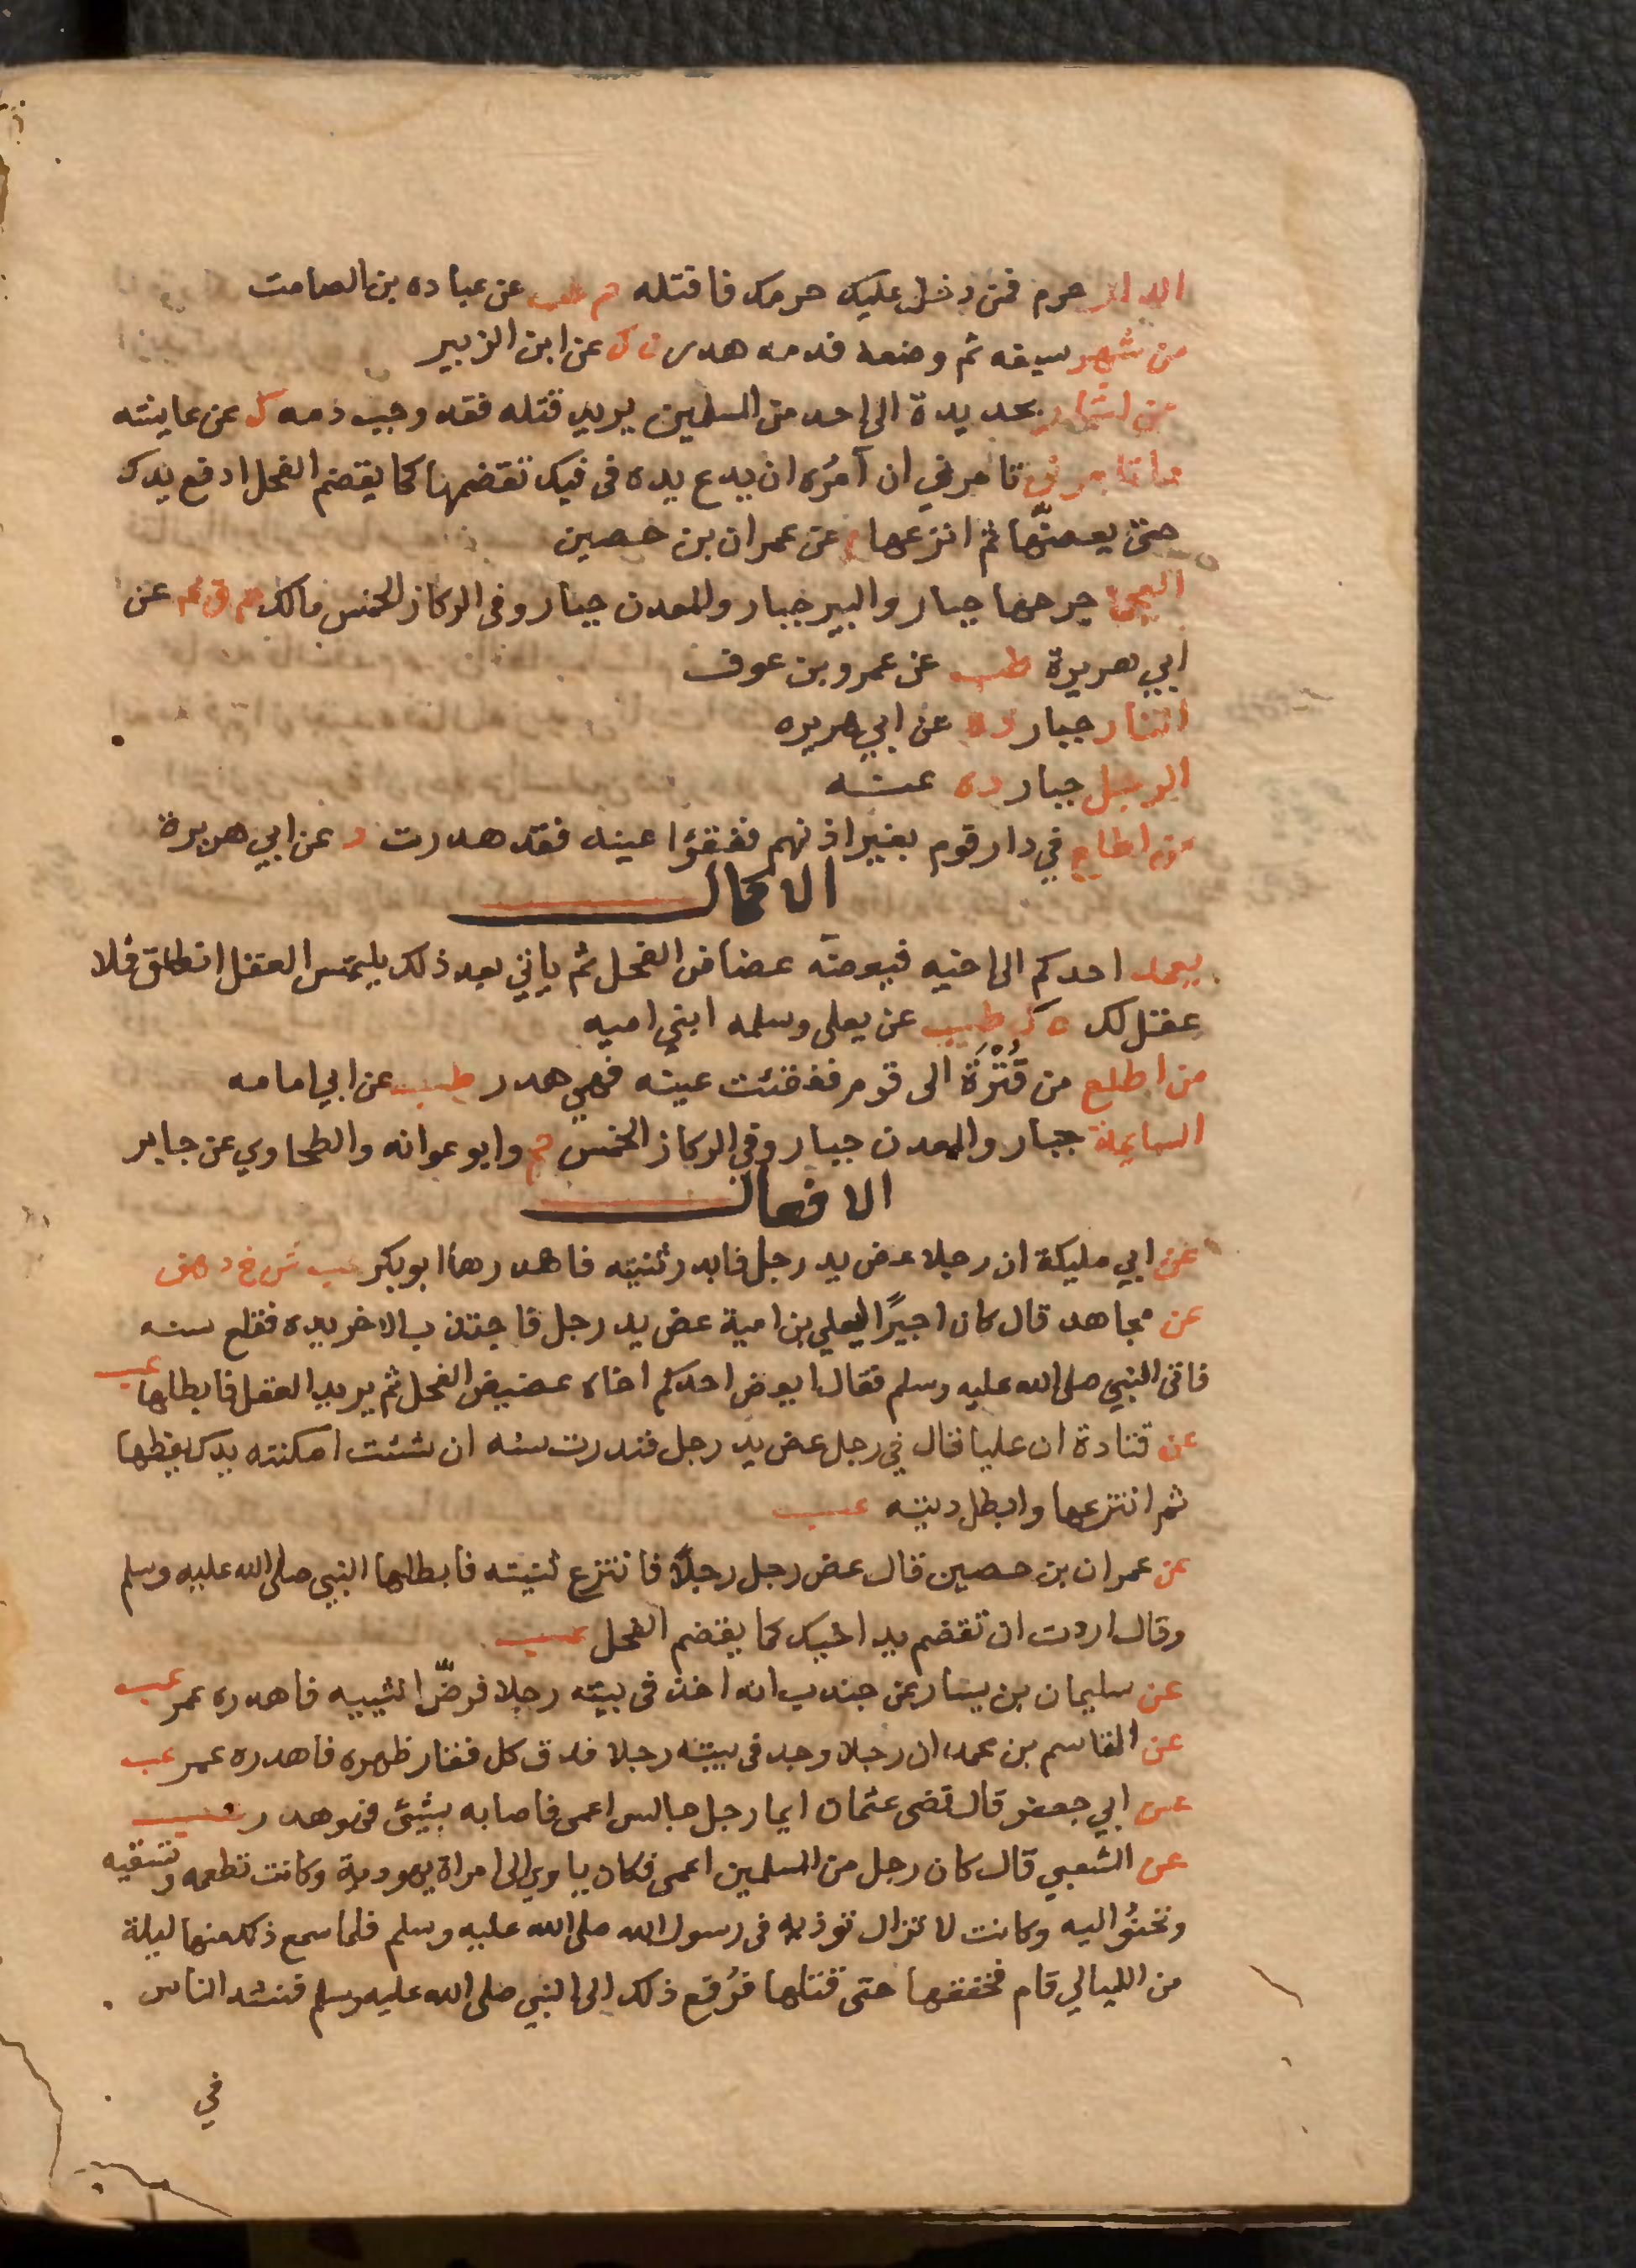 الدار حرم فمن دخل عليك حرمك فاقتله حم طب عن عباده بن الصامت
من شهر سيفه ثم وضعه فدمه هدر ن ك عن ابن الزبير
من اشار بحديدة الى احد من المسلمين يريد قتله فقد وجب دمه ك عن عايشه
ما تامرني تامرني ان آمُره ان يدع يده في فيك تقضمها كما يقضم الفحل ادفع يدك
حتى يعضّها ثم انزعها م عن عمران بن حصين
العجما جرحها جبار والبير جبار والمعدن جبار وفي الركاز الخمس مالك حم ق عن
ابي هريرة طب عن عمرو بن عوف
النار جبار د ه عن ابي هريره
الرجل جبار د ه عنه
من اطلع في دار قوم بغير اذنهم ففقؤا عينه فقد هدرت د عن ابي هريرة
الاكمال
يعمد احدكم الى اخيه فيعضه عضاض الفحل ثم ياتي بعد ذلك يلتمس العقل انطلق فلا
عقل لك ه ك طب عن يعلى وسلمه ابني اميه
من اطلع من قُتْرَة الى قوم ففقئت عينه فهي هدر طب عن ابي امامه
السايمة جبار والمعدن جبار وفي الركاز الخمس حم وابو عوانه والطحاوي عن جابر
الافعال
عن ابي مليكة ان رجلا عض يد رجل فاندر ثنيته فاهدرها ابو بكر عب ش خ د هق
عن مجاهد قال كان اجيرًا ليعلى بن امية عض يد رجل فاجتذب الاخر يده فقلع سنه
فاتى النبي صلى الله عليه وسلم فقال ايعض احدكم اخاه عضيض الفحل ثم يريد العقل فابطلها عب
عن قتادة ان عليا قال في رجل عض يد رجل فندرت سنه ان شئت امكنته يدك يعضها
ثم انتزعها وابطل ديته عب
عن عمران بن حصين قال عض رجل رجلًا فانتزع ثنيته فابطلها النبي صلى الله عليه وسلم
وقال اردت ان تقضم يد اخيك كما يقضم الفحل عب
عن سليمان بن يسار عن جندب انه اخذ في بيته رجلا فرضّ انثييه فاهدره عمر عب
عن القاسم بن محمد ان رجلا وجد في بيته رجلا فدق كل فقار ظهره فاهدره عمر عب
عن ابي جعفر قال قضى عثمان ايما رجل جالس اعمى فاصابه بشئ فهو هدر عب
عن الشعبي قال كان رجل من المسلمين اعمى فكان ياوي الى امراة يهودية وكانت تطعمه وتسقيه
وتحنُوا اليه وكانت لا تزال توذيه في رسول الله صلى الله عليه وسلم فلما سمع ذلك منها ليلة
من الليالي قام فخنقها حتى قتلها فرُفع ذلك الى النبي صلى الله عليه وسلم فنشد الناس
في